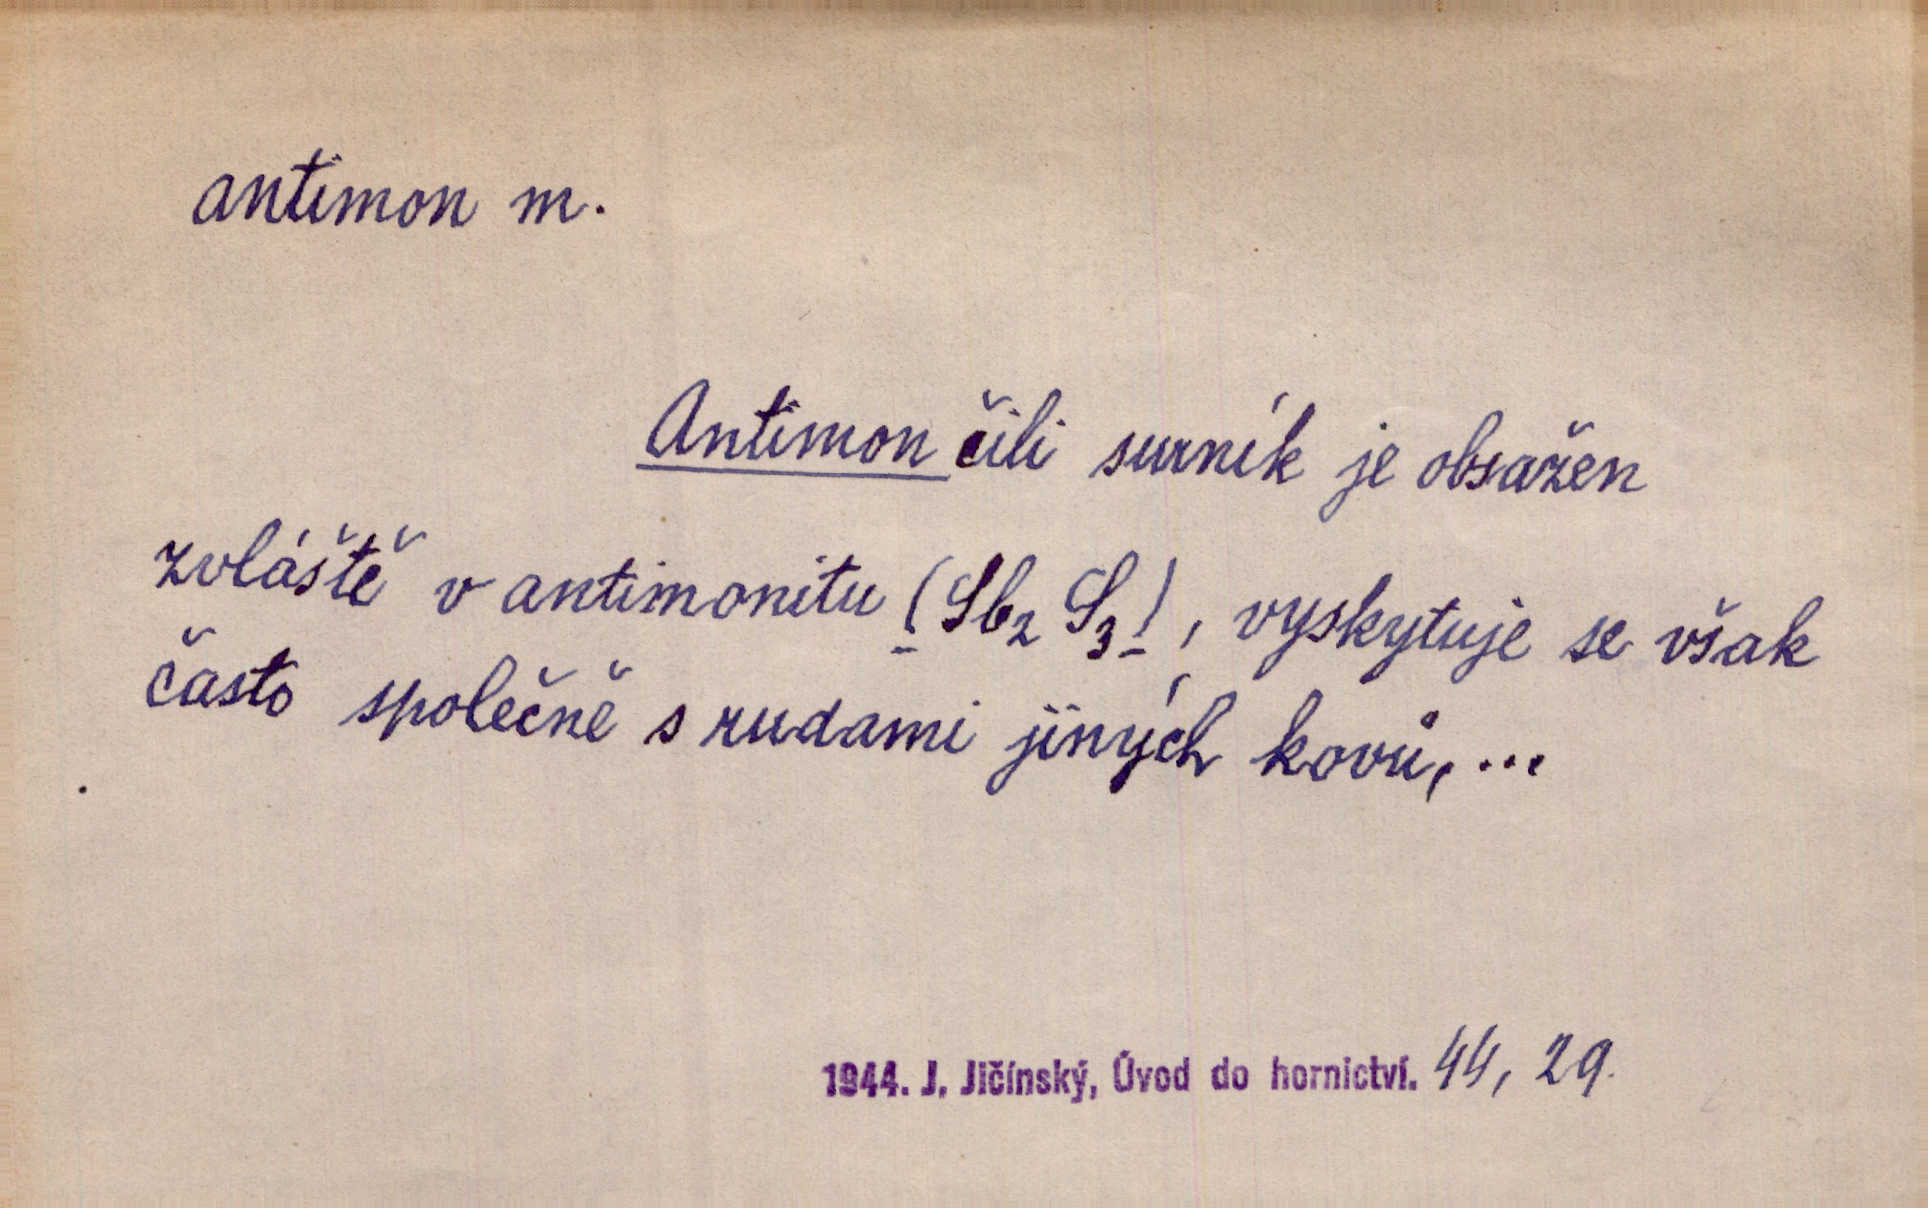 antimon m.
Antimon čili surník je obsažen
zvláště v antimonitu (Sb₂ S₃), vyskytuje se však
často společně s rudami jiných kovů, ...
1944. J. Jičínský, Úvod do hornictví. 44, 29.